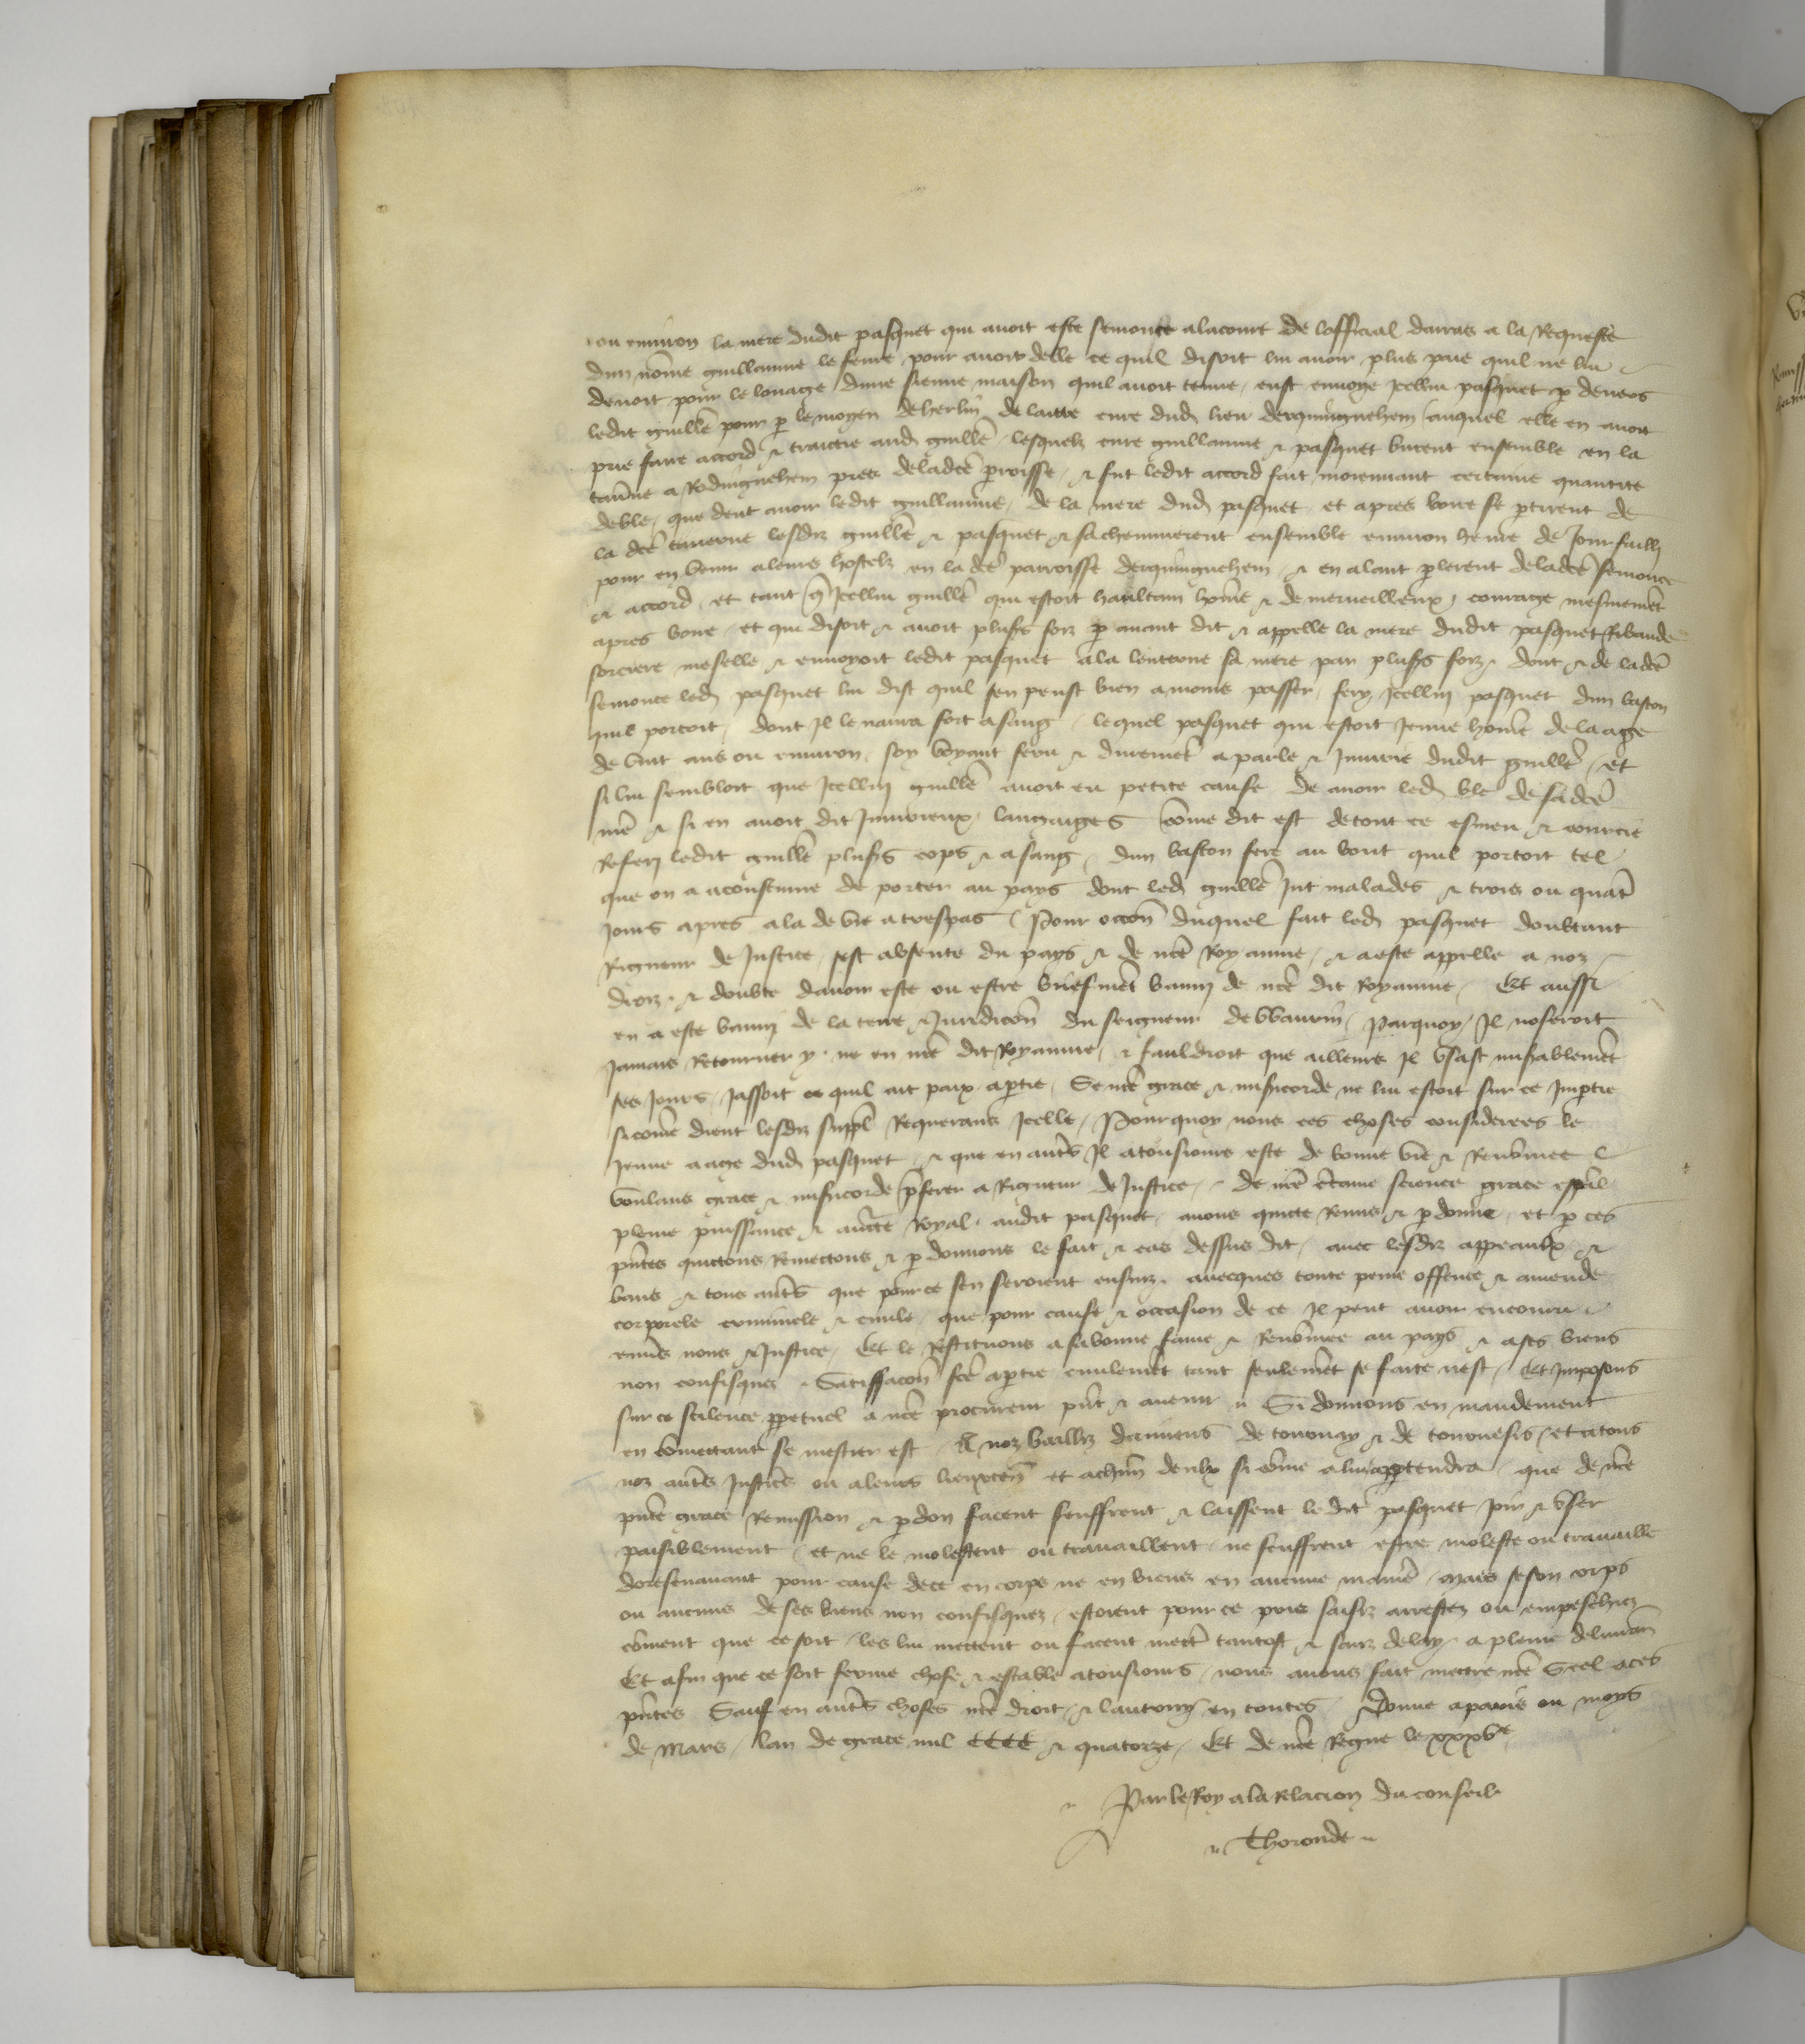 ou environ la mere dudit pasquet qui avoit este semonce a la court de lofficial darras a la Requeste
dun nōme guillaume le fevre pour avoir delle ce quil disoit lui avoir plus paie quil ne lui
devoit pour le louage dune sienne maison quil avoit tenue eust envoye Icellui pasquet p devers
ledit guillē pour p le moyen de herlin de laitre cure dud lieu derquinguehem auquel elle en avoit
prie faire accord & traictie aud guillē lesquelz cure guillaume & pasquet burent ensemble en la
tav̄ne a Rodinguehem pres de lad̄ce p̄roisse & fut ledit accord fait moiennant certaine quantite
de ble que deut avoir ledit guillaume de la mere dud pasquet et apres boire se p̄tirent de
la dc̄e taverne lesdiz guillē & pasquet & sacheminerent ensemble environ heure de Jour failli
pour en venir a leurs hostelz en la dc̄e parroisse derquinguehem & en alant p̄lerent de ladc̄e semonce
& accord et tant q̄ Icellui guillē qui estoit haultain hōme & de merveilleux courage mesmemēt
apres boire et qui disoit & avoit plus̄s foiz p avant dit & appelle la mere dudit pasquet Ribaude
sorciere meselle & envoyoit ledit pasquet a la lenterne sa mere par plus̄s foiz dont & de ladc̄e
semonce led pasquet lui dist quil sen peust bien a moins passer fery Icellui pasquet dun baston
quil portoit dont Il le navra fort a sang lequel pasquet qui estoit Jenne hōme de laage
de vint ans ou environ soy voyant feru & duremēt a parle & Injurie dudit guillē et
si lui sembloit que Icellui guillē avoit eu petite cause de avoir led ble de sa dc̄e
mē & si en avoit dit Injurieux langaiges cōme dit est de tout ce esmeu & courcie
Refery ledit guillē plus̄s cops & a sang dun baston ferre au bout quil portoit tel
que on a acoustume de porter au pays dont led guillē Jut malades & trois ou quat̄
Jours apres ala de vie a trespas Pour occōn duquel fait led pasquet doubtant
Rigueur de Justice sest absente du pays & de nrē Royaume & a este appelle a noz
droiz & doubte davoir este ou estre briefmēt banny de nrē dit Royaume Et aussi
en a este banny de la terre & Juridicōn du seigneur de Wavrin Parquoy Il noseroit
Jamais Retourner y ne en nrē dit Royaume & fauldroit que ailleurs Il usast mis̄ablemēt
ses Jours Jassoit ce quil ait paix a p̄tie Se nrē grace & mis̄icorde ne lui estoit sur ce Imp̄tie
sicōme dient lesdiz suppl̄ Requerans Icelle Pourquoy nous ces choses considerees le
Jenne aage dud pasquet & que en aut̄s Il a tousiours este de bonne vie & Renōmee
voulans grace & mis̄icorde p̄ferer a Rigueur de Justice de nrē c̄taine science grace esp̄al
pleine puissance & auct̄e Royal audit pasquet avons quicte Remis & p̄donne et p ces
pn̄tes quictons Remectons & p̄donnons le fait & cas dessus dit avec lesdiz appeaulx &
bans & tous aut̄s que pour ce sen seroient ensuiz avecques toute peine offense & amende
corporele criminele & civile que pour cause & occasion de ce Il peut avoir encouru
env̄s nous & Justice Et le Restituons a sa bonne fame & Renōmee au pays & a ses biens
non confisquez Satisfacōn fcē a p̄tie civilemēt tant seulemēt se faite nest Et Imposons
sur ce scilence p̄petuel a nrē procureur pn̄t & avenir Si donnons en mandement
en cōmectant se mestier est A noz bailliz damiens de tournay & de tournesis et a tous
noz aut̄s Justic̄es ou a leurs lieuxten̄ et a chūn deulx si cōme a lui app̄tendra que de nrē
pn̄te grace Remission & p̄don facent seuffrent & laissent le dit pasquet Joir & user
paisiblement et ne le molestent ou travaillent ne seuffrent estre moleste ou travaille
doresenavant pour cause de ce en corps ne en biens en aucune maniē Mais se son corps
ou aucuns de ses biens non confisquez estoient pour ce pris saisiz arrestez ou empeschiez
cōment que ce soit les lui mettent ou facent mett̄ tantost & sanz delay a pleine delivrān
Et afin que ce soit ferme chose & estable a tousiours nous avons fait mectre nrē Scel a ces
pn̄tes Sauf en aut̄s choses nrē droit & lautruy en toutes Donne a paris ou moys
de Mars lan de grace mil CCCC & quatorze Et de nrē Regne le xxxve
Par le Roy a la Relacion du conseil
Thoronde